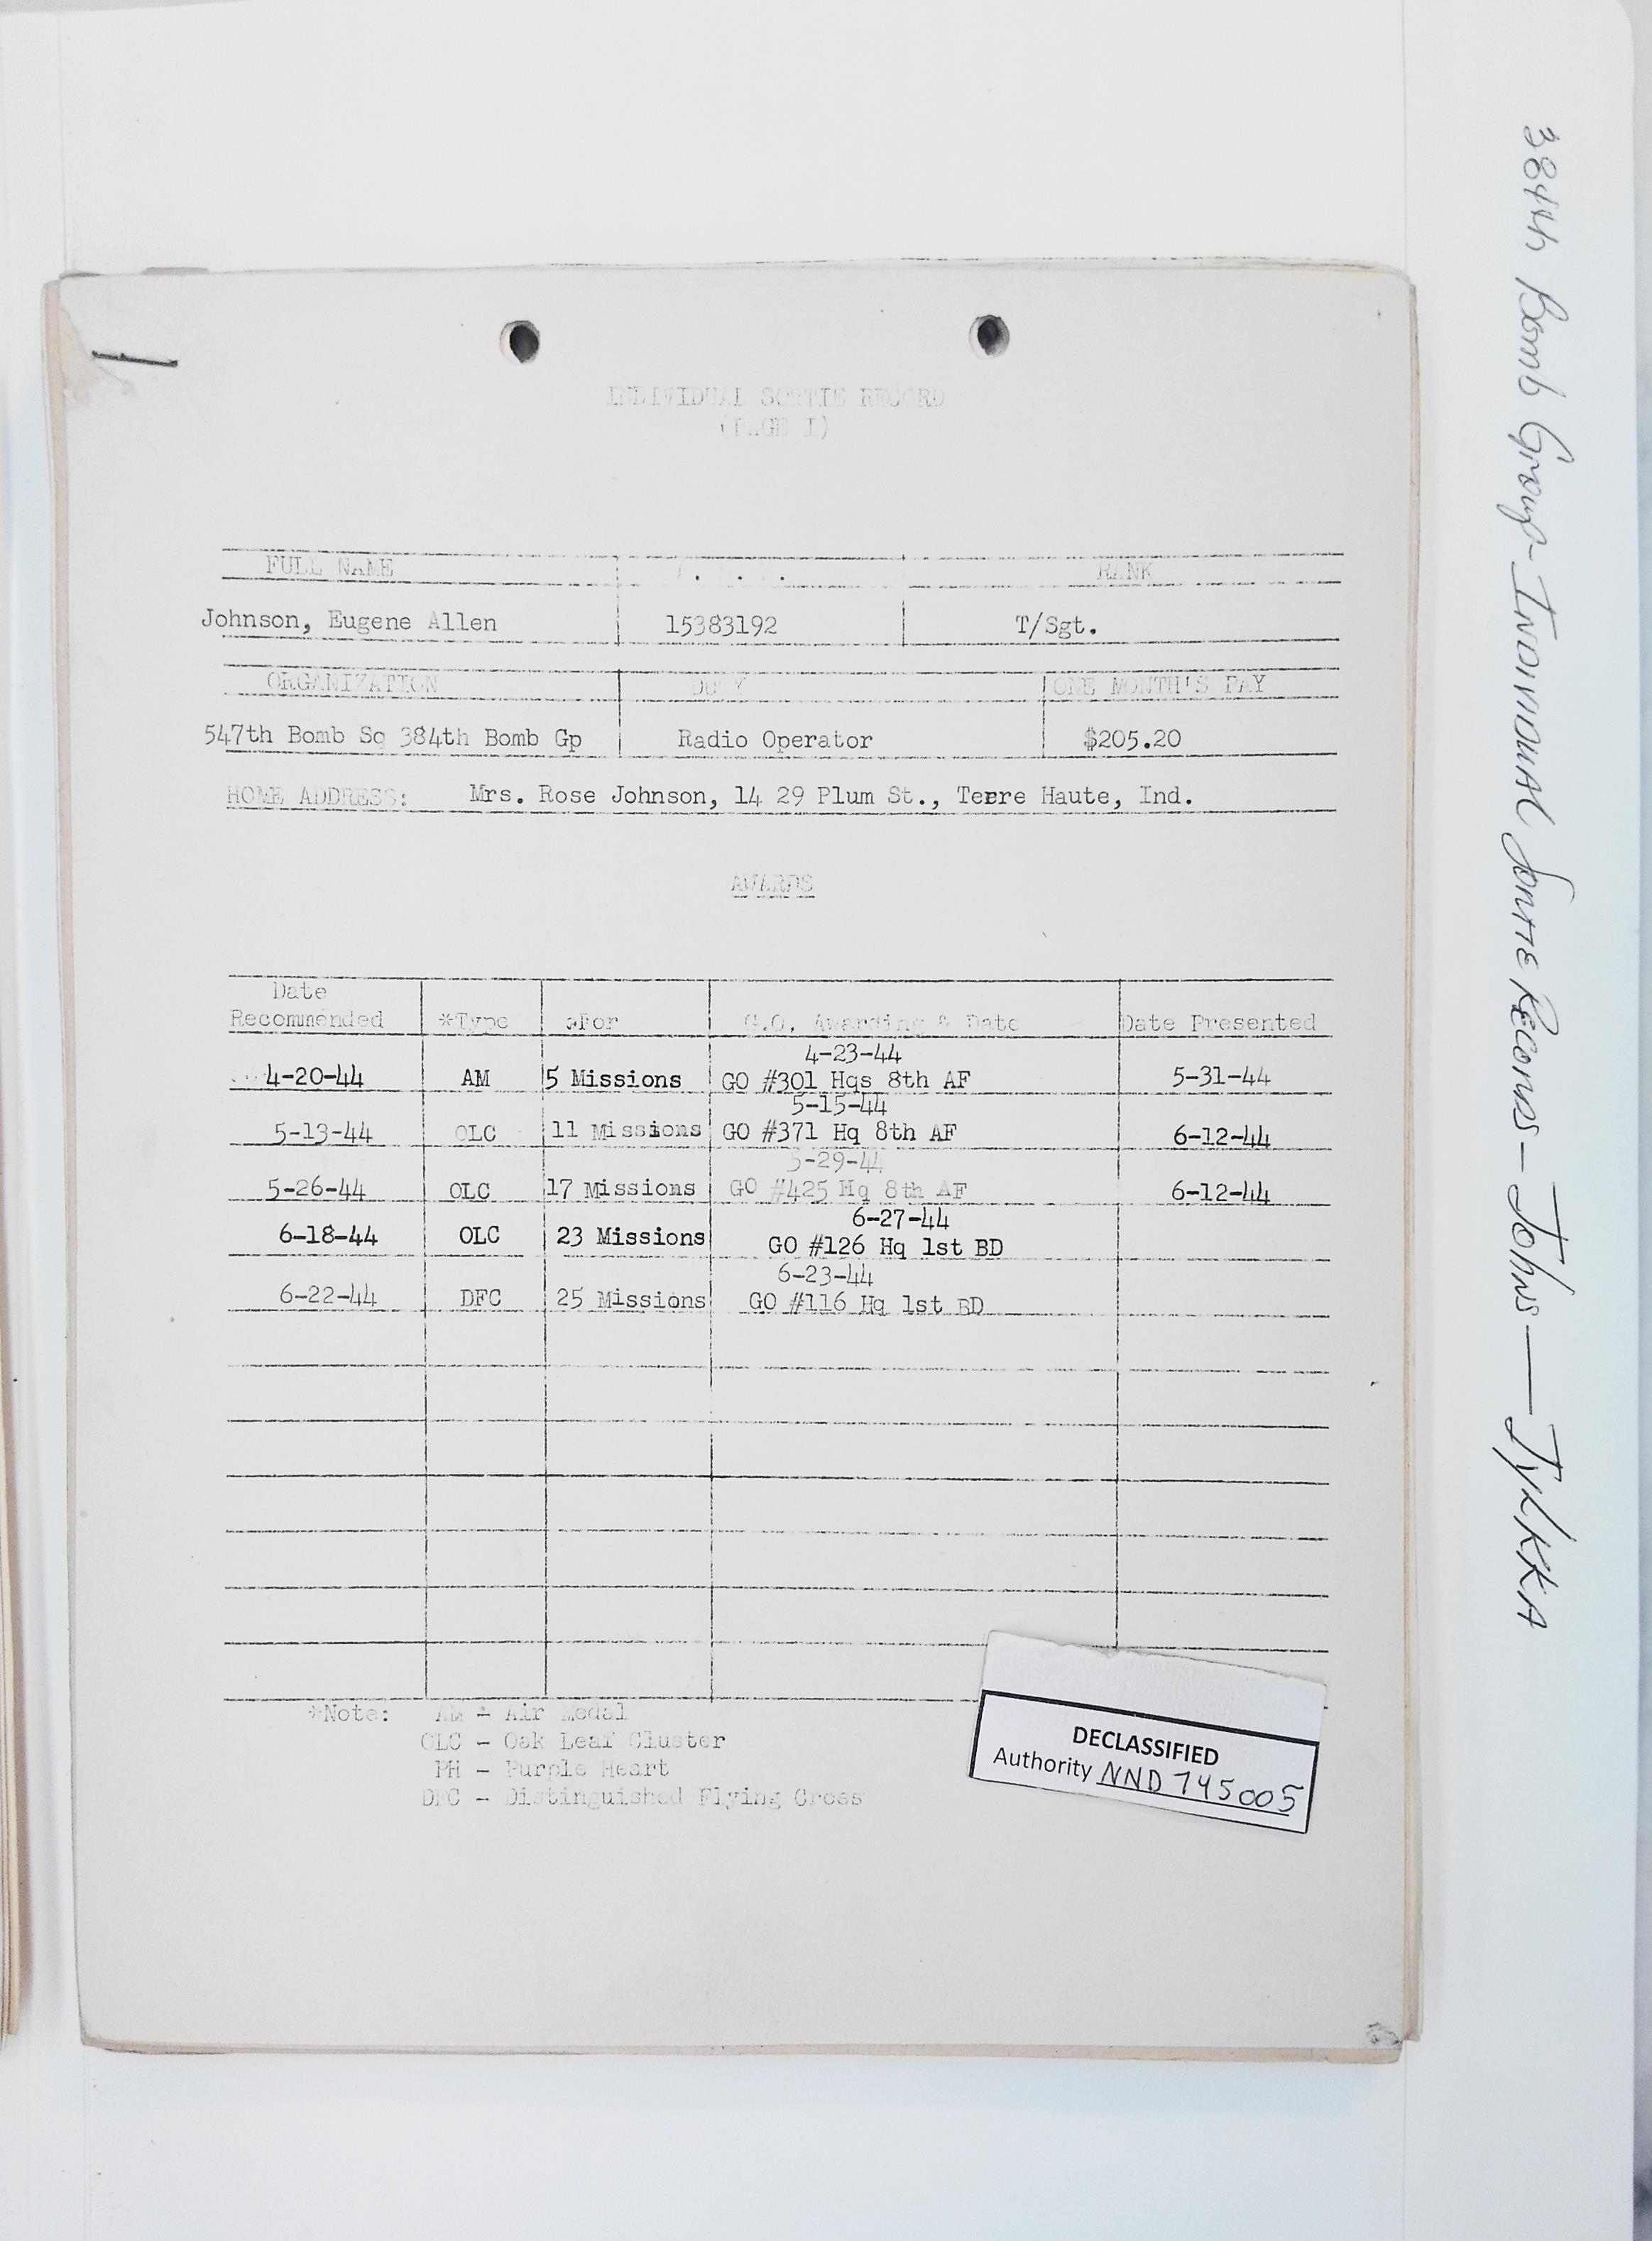 INDIVIDUAL SORTIE RECORD
(PAGE I)
FULL NAME RANK
Johnson, Eugene Allen 15383192 T/Sgt.
ORGANIZATION DUTY ONE MONTH'S PAY
547th Bomb Sq 384th Bomb Gp Radio Operator $205.20
HOME ADDRESS: Mrs. Rose Johnson, 14 29 Plum St., Terre Haute, Ind.
AWARDS
Date
Recommended *Type *For G.O. Awarding & Date Date Presented
4-23-44
4-20-44 AM 5 Missions GO #301 Hqs 8th AF 5-31-44
5-15-44
5-13-44 OLC 11 Missions GO #371 Hq 8th AF 6-12-44
5-29-44
5-26-44 OLC 17 Missions GO #425 Hq 8th AF 6-12-44
6-27-44
6-18-44 OLC 23 Missions GO #126 Hq 1st BD
6-23-44
6-22-44 DFC 25 Missions GO #116 Hq 1st BD
*Note: AM - Air Medal
OLC - Oak Leaf Cluster
PH - Purple Heart
DFC - Distinguished Flying Cross
DECLASSIFIED
Authority NND 745005
384th Bomb Group - INDIVIDUAL SORTIE RECORDS - Johns - TYLKKA